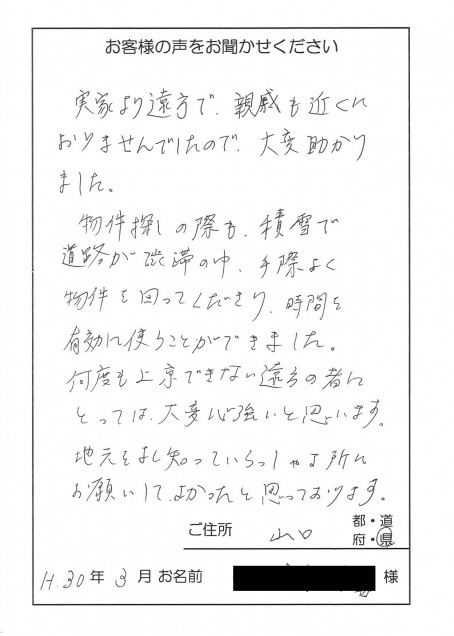 お客様の声をお聞かせください
実家より遠方で、親戚も近くに
おりませんでしたので、大変助かり
ました。
物件探しの際も、積雪で
道路が渋滞の中、手際よく
物件を回ってくださり、時間を
有効に使うことができました。
何度も上京できない遠方の者に
とっては、大変心強いと思います。
地元をよし知っていらっしゃる所に
お願いして、よかったと思っております。
ご住所 山口 都・道
府・県
H.30年 3月 お名前 様